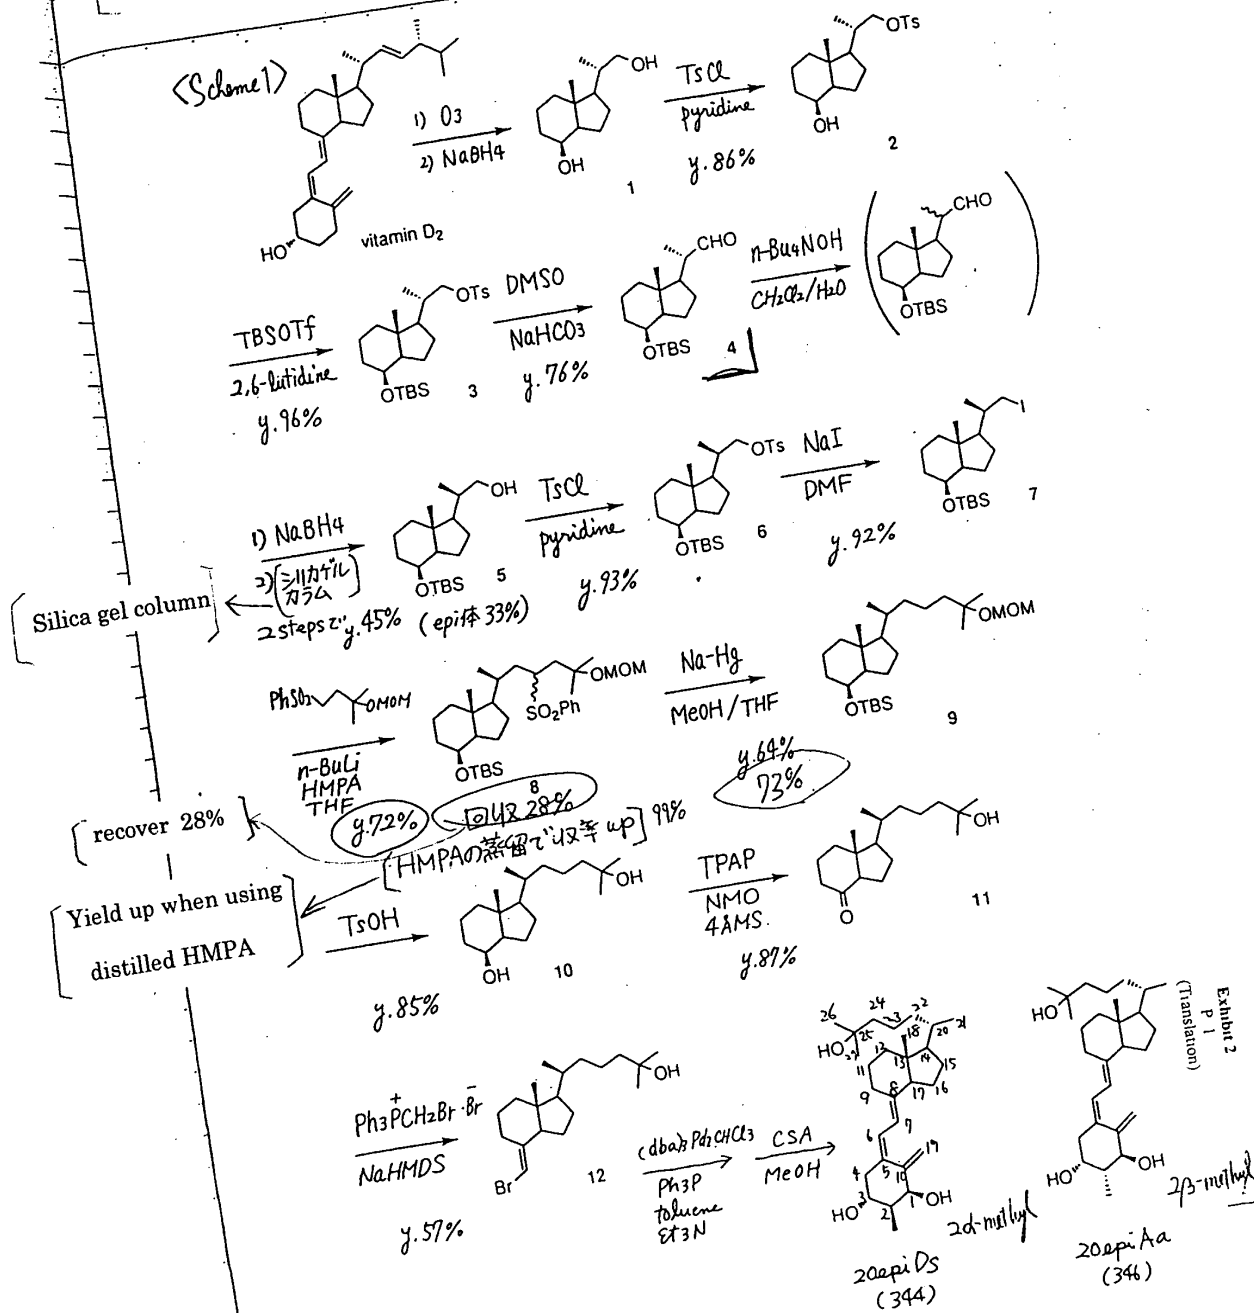 <Scheme1>
1) O3
2) NaBH4
HO
vitamin D2
OH
OH
1
TsCl
pyridine
y.86%
OTs
OH
2
TBSOTf
2,6-lutidine
y.96%
OTs
OTBS
3
DMSO
NaHCO3
y.76%
CHO
OTBS
4
n-Bu4NOH
CH2Cl2/H2O
CHO
OTBS
1) NaBH4
2) (シリカゲル
カラム)
2stepsで y.45% (epi体 33%)
[Silica gel column]
OH
OTBS
5
TsCl
pyridine
y.93%
OTs
OTBS
6
NaI
DMF
y.92%
I
OTBS
7
PhSO2
OMOM
n-BuLi
HMPA
THF
y.72%
回収28%
[HMPAの蒸留で収率up] 99%
[recover 28%]
[Yield up when using
distilled HMPA]
OMOM
SO2Ph
OTBS
8
Na-Hg
MeOH/THF
y.64%
73%
OMOM
OTBS
9
TsOH
y.85%
OH
OH
10
TPAP
NMO
4AMS.
y.87%
OH
O
11
Ph3PCH2Br・Br
+
-
NaHMDS
y.57%
OH
Br
12
(dba)3Pd2CHCl3
Ph3P
toluene
Et3N
CSA
MeOH
26
24
22
25
23
21
HO
27
18
20
12
13
14
11
15
9
8
17
16
7
6
19
4
5
10
3
1
HO
2
OH
2α-methyl
20epiDs
(344)
HO
HO
OH
2β-methyl
20epiAa
(346)
Exhibit 2
P 1
(Translation)